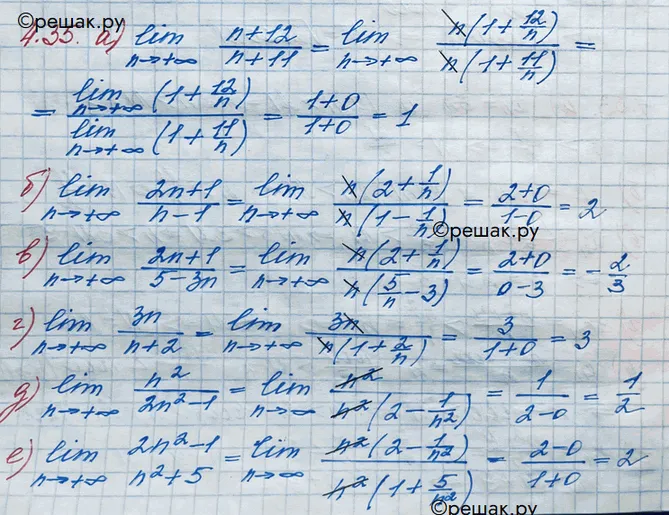 ©решак.ру
4.35. а) lim n→+∞ (n+12)/(n+11) = lim n→+∞ n(1+12/n)/n(1+11/n) =
= lim n→+∞ (1+12/n) / lim n→+∞ (1+11/n) = (1+0)/(1+0) = 1
б) lim n→+∞ (2n+1)/(n-1) = lim n→+∞ n(2+1/n)/n(1-1/n) = (2+0)/(1-0) = 2
©решак.ру
в) lim n→+∞ (2n+1)/(5-3n) = lim n→+∞ n(2+1/n)/n(5/n-3) = (2+0)/(0-3) = -2/3
г) lim n→+∞ 3n/(n+2) = lim n→+∞ 3n/n(1+2/n) = 3/(1+0) = 3
д) lim n→+∞ n²/(2n²-1) = lim n→∞ n²/n²(2-1/n²) = 1/(2-0) = 1/2
е) lim n→+∞ (2n²-1)/(n²+5) = lim n→∞ n²(2-1/n²)/n²(1+5/n²) = (2-0)/(1+0) = 2
©решак.ру